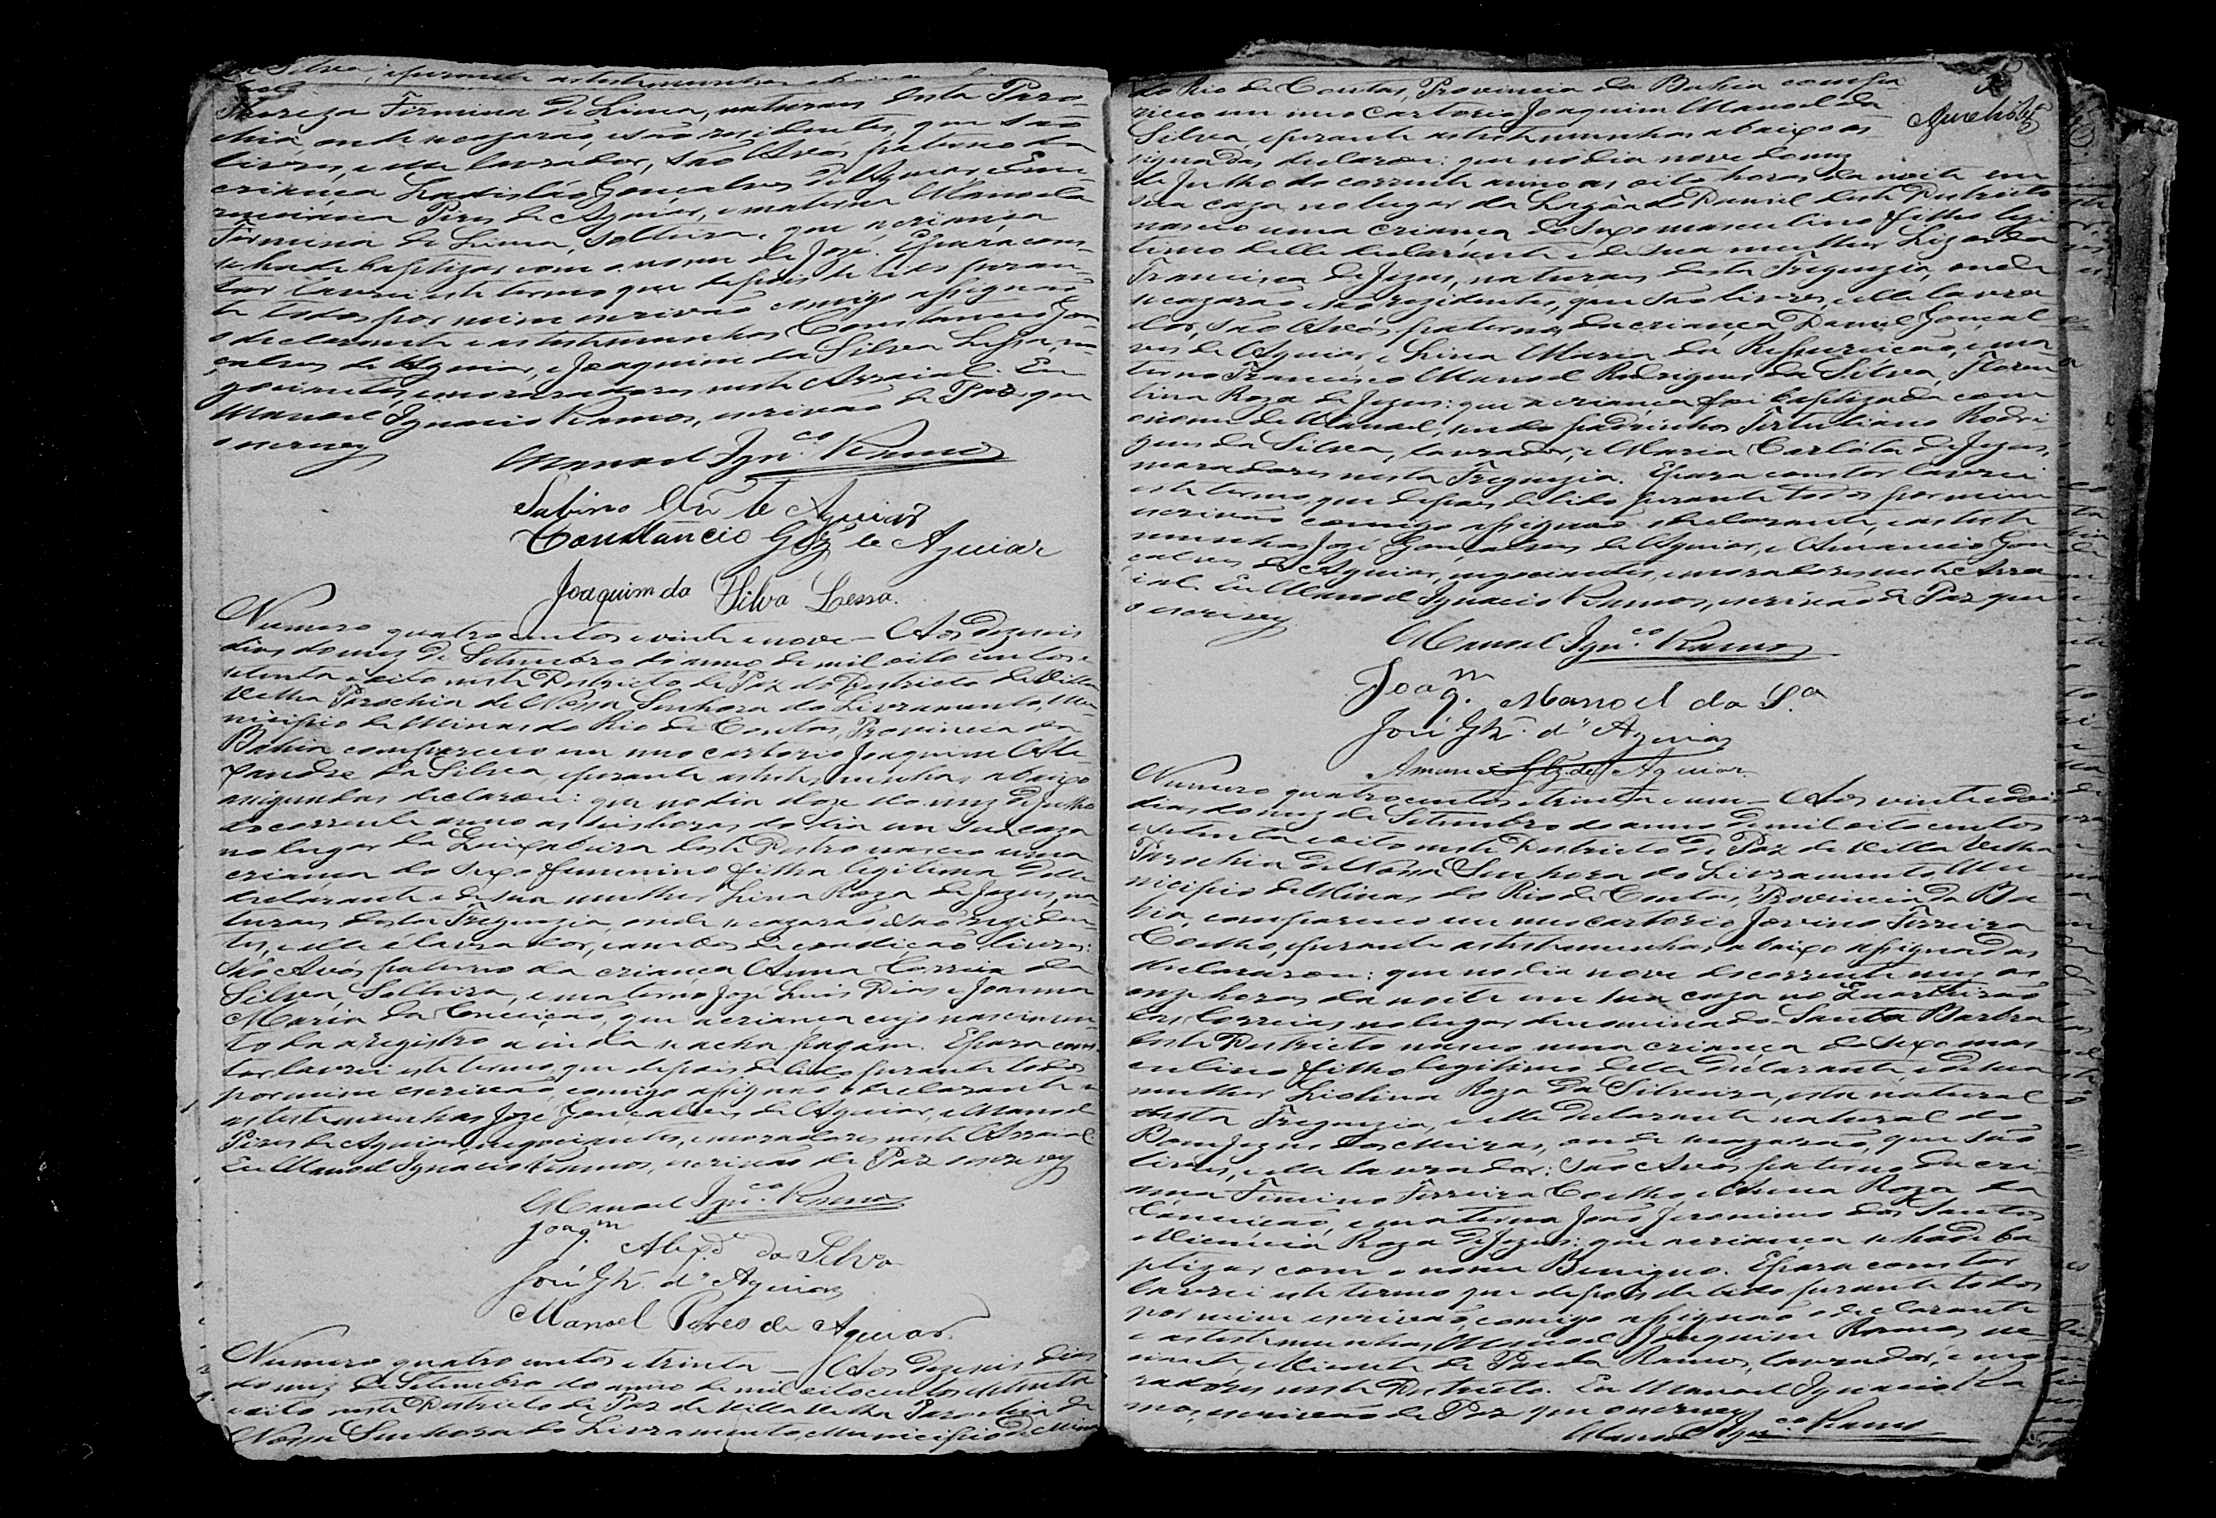 da Silva, e perante as testemunhas abaixo
Thereza Firmina de Lima, naturaes desta Paro-
chia, onde se cazarão, e são rezidentes, que são
livres, e elle lavrador, são Avós paterno da
criança Ladisláo Gonçalves de Aguiar, e Eme-
renciana Pires de Aguiar, e materna Manoela
Firmina de Lima, solteira, que a criança
se ha de baptizar com o nome de José. E para cons-
tar lavrei este termo que depois de lido peran-
te todos por mim escrivão comigo assignão
o declarante e as testemunhas Constancio Gon-
çalves de Aguiar, e Joaquim da Silva Lessa, ne-
gociantes, e moradores neste Arraial. Eu
Manoel Ignacio Ramos, escrivão de Paz que
o escrevy
Manoel Ign.co Ramos
Sabino de Aguiar
Constâncio Glz de Aguiar
Joaquim da Silva Lessa.
Numero quatro centos e vinte e nove — Aos dezeseis
dias do mez de Setembro do anno de mil oito centos e
setenta e oito neste Destricto de Paz do Destricto de Villa
Velha Parochia de Nossa Senhora do Livramento, Mu-
nicipio de Minas do Rio de Contas, Provincia da
Bahia compareceo em meo cartorio Joaquim Ale-
xandre da Silva, e perante as testemunhas abaixo
assignadas declarou: que no dia doze do mez de Julho
do corrente anno as seis horas do dia em sua caza
no lugar da deste Destro nasceo uma
criança do sexo feminino filha legitima delle
declarante e de sua mulher Lina Roza de Jezus, na-
turaes desta Freguezia, onde se cazarão e são rezidén-
tes, e elle é lavrador, e ambos de condição livres:
São Avós paterno da criança Anna Correia da
Silva, Solteira, e materno José Luis Dias e Joanna
Maria da Conceição, que a criança cujo nascimen-
to da a registro ainda se acha pagam. E para cons-
tar lavrei este termo que depois de lido perante todos
por mim escrivão, comigo assignão o declarante e
as testemunhas José Gonçalves de Aguiar, e Manoel
Pires de Aguiar, negociantes, e moradores neste Arraial
Eu Manoel Ignacio Ramos, escrivão de Paz o escrevy
Manoel Ign.co Ramos
Joaq.m Alex.de da Silva
José Glz. d' Aguiar
Manoel Peres de Aguiar.
Numero quatro centos e trinta — Aos dezeseis dias
do mez de Setembro do anno de mil oito centos e setenta
e oito neste Destricto de Paz de Villa Velha Parochia de
Nossa Senhora do Livramento, Municipio de Minas
do Rio de Contas, Provincia da Bahia compa-
receo em meo cartorio Joaquim Manoel da
Silva, e perante as testemunhas abaixo as-
signadas, declarou: que no dia nove do mez
de Julho do corrente anno as oito horas da noite em
sua caza no lugar da Lagôa do Daniel deste Destricto
nasceo uma criança do sexo masculino filho legi-
timo delle declarante e de sua mulher Lizarda
Francisca de Jezus, naturaes desta Freguezia, onde
se cazarão e são rezidentes, que são livres, e elle lavra-
dor, são Avós paternos da criança Daniel Gonçal-
ves de Aguiar, e Lina Maria da Ressureição, e ma-
terno Francisco Manoel Rodrigues da Silva, Floren-
tina Roza de Jezus: que a criança foi baptizada com
o nome de Manoel, sendo padrinhos Tertuliano Rodri-
gues da Silva, lavrador, e Maria Carlóta de Jezus,
moradores nesta Freguezia. E para constar lavrei
este termo que depois de lido perante todos por mim
escrivão comigo assignão o declarante, e as teste-
munhas José Gonçalves de Aguiar, e Amancio Gon-
çalves de Aguiar, negociantes, e moradores neste Arra-
ial. Eu Manoel Ignacio Ramos, escrivão de Paz que
o escrevy
Manoel Ign.co Ramos
Joaq.m Manoel da S.a
José Glz. d' Aguiar
Amancio Glz de Aguiar
Numero quatro centos e trinta e um — Aos vinte e dois
dias do mez de Setembro do anno de mil oito centos
e setenta e oito neste Destricto de Paz de Villa Velha
Parochia de Nossa Senhora do Livramento Mu-
nicipio de Minas do Rio de Contas, Provincia da Ba-
hia, compareceo em meo cartorio Jovino Ferreira
Coelho, e perante as testemunhas abaixo assignadas
declarou: que no dia nove do corrente mez as
onze horas da noite em sua caza no Quarteirão
das Correias, no lugar denominado Santa Barbra
deste Destricto nasceo uma criança do sexo mas-
culino filho legitimo delle declarante, e de sua
mulher Roza da Silveira, esta natural
desta Freguezia, e elle declarante natural do
Bom Jezus dos Meiras, onde se cazarão, que são
livres, e elle lavrador: São Avós paterno da cri-
ança Firmino Ferreira Coelho, e Anna Roza da
Conceição, e materna João Jeronimo dos Santos
e Roza de Jezus: que a criança se ha de ba-
ptizar com o nome Benigno. E para constar
lavrei este termo que depois de lido perante todos
por mim escrivão, comigo assignão o declarante
e as testemunhas Manoel Joaquim Ramos, ne-
gociante, e Vicente de Paula Ramos, lavrador, e mo-
radores neste Destricto. Eu Manoel Ignacio Ra-
mos, escrivão de Paz que o escrevy
Manoel Ign.co Ramos